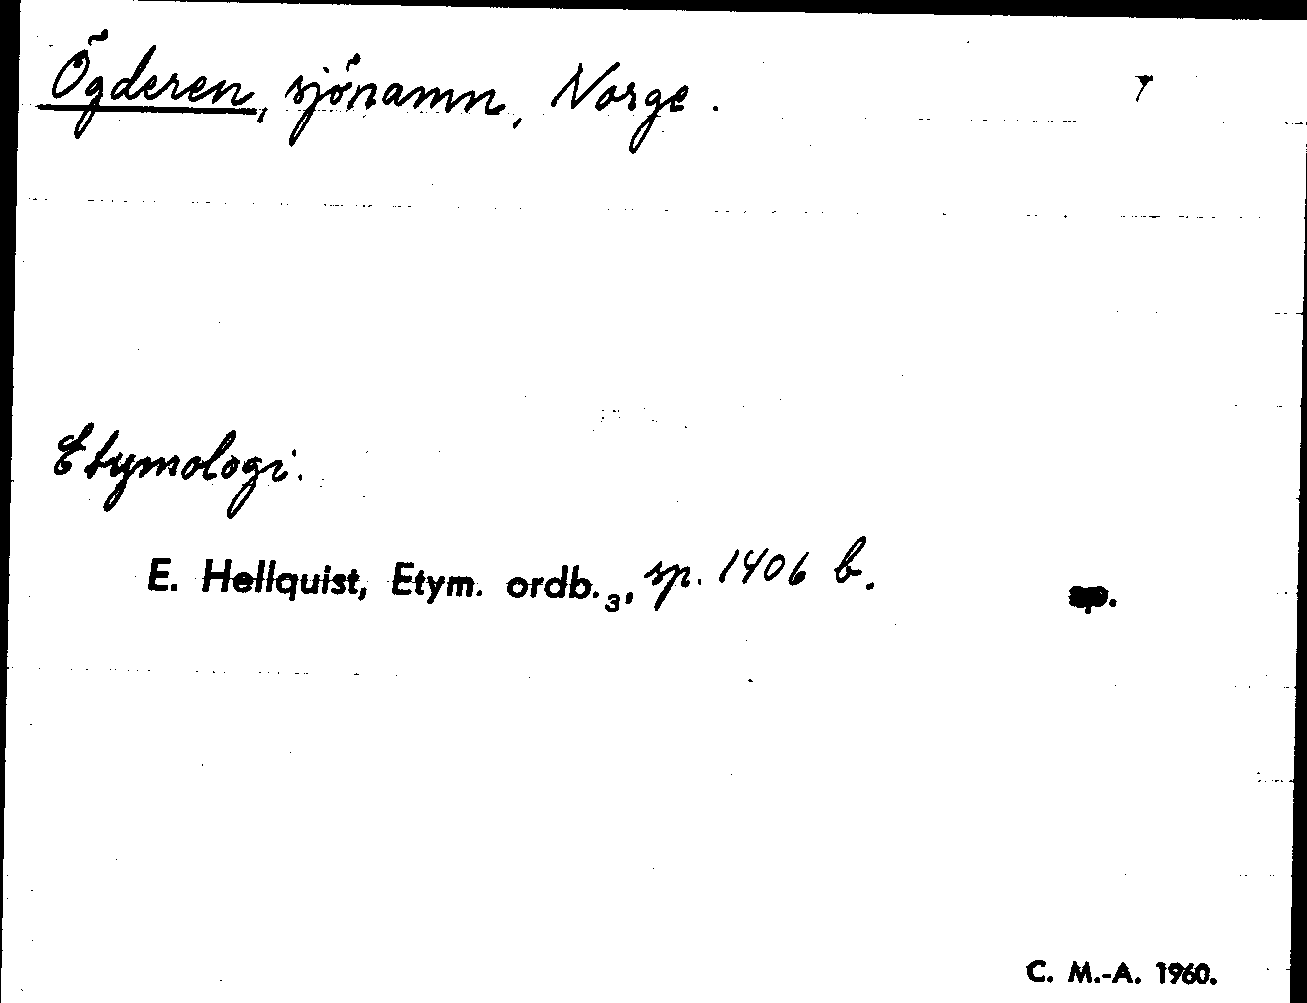 Ögderen, sjönamn, Norge.
Etymologi.
E. Hellquist, Etym. ordb.₃, sp. 1406 b.
C. M.-A. 1960.